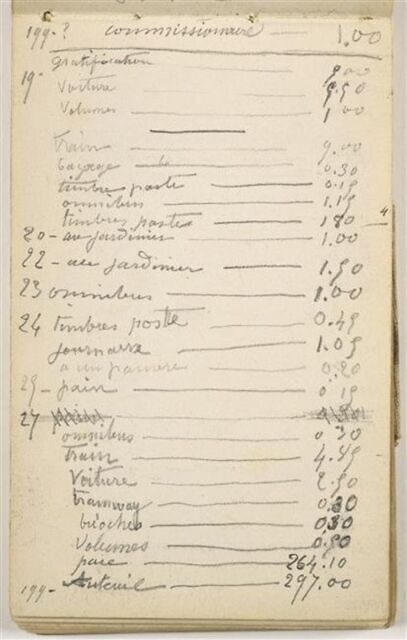 199-? commissionaire — 1.00
gratification — 9.00
19 voiture — 9.50
volumes — 1 00
train — 9.00
bagage — 0.30
timbre poste — 0.15
omnibus — 1.15
timbres postes — 1 80
20 - au jardinier — 1.00
22 - au jardinier — 1.50
23 omnibus — 1.00
24 timbres poste — 0.45
journaux — 1.05
a un pauvre — 0.20
25 - pain — 0.15
27
omnibus — 0.30
train — 4.45
Voiture — 2.50
tramway — 0.30
brioches — 0.30
Volumes — 0.50
paie — 264.10
199- Auteuil — 297.00